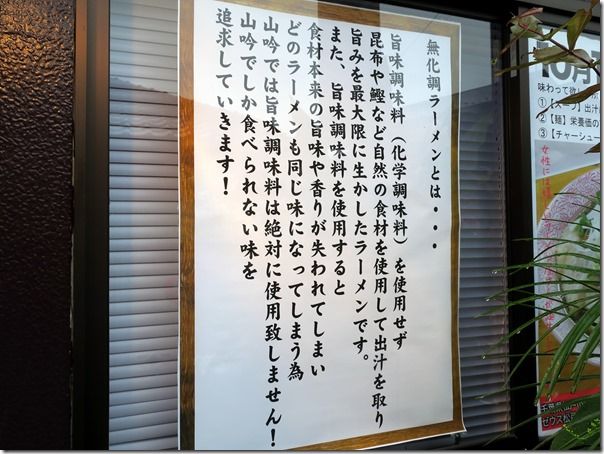 無化調ラーメンとは・・・
旨味調味料（化学調味料）を使用せず
昆布や鰹など自然の食材を使用して出汁を取り
旨みを最大限に生かしたラーメンです。
また、旨味調味料を使用すると
食材本来の旨味や香りが失われてしまい
どのラーメンも同じ味になってしまう為
山吟では旨味調味料は絶対に使用致しません！
山吟でしか食べられない味を
追求していきます！
10月
味わって欲し
①【スープ】出汁
②【麺】栄養価の
③【チャーシュー
女性には